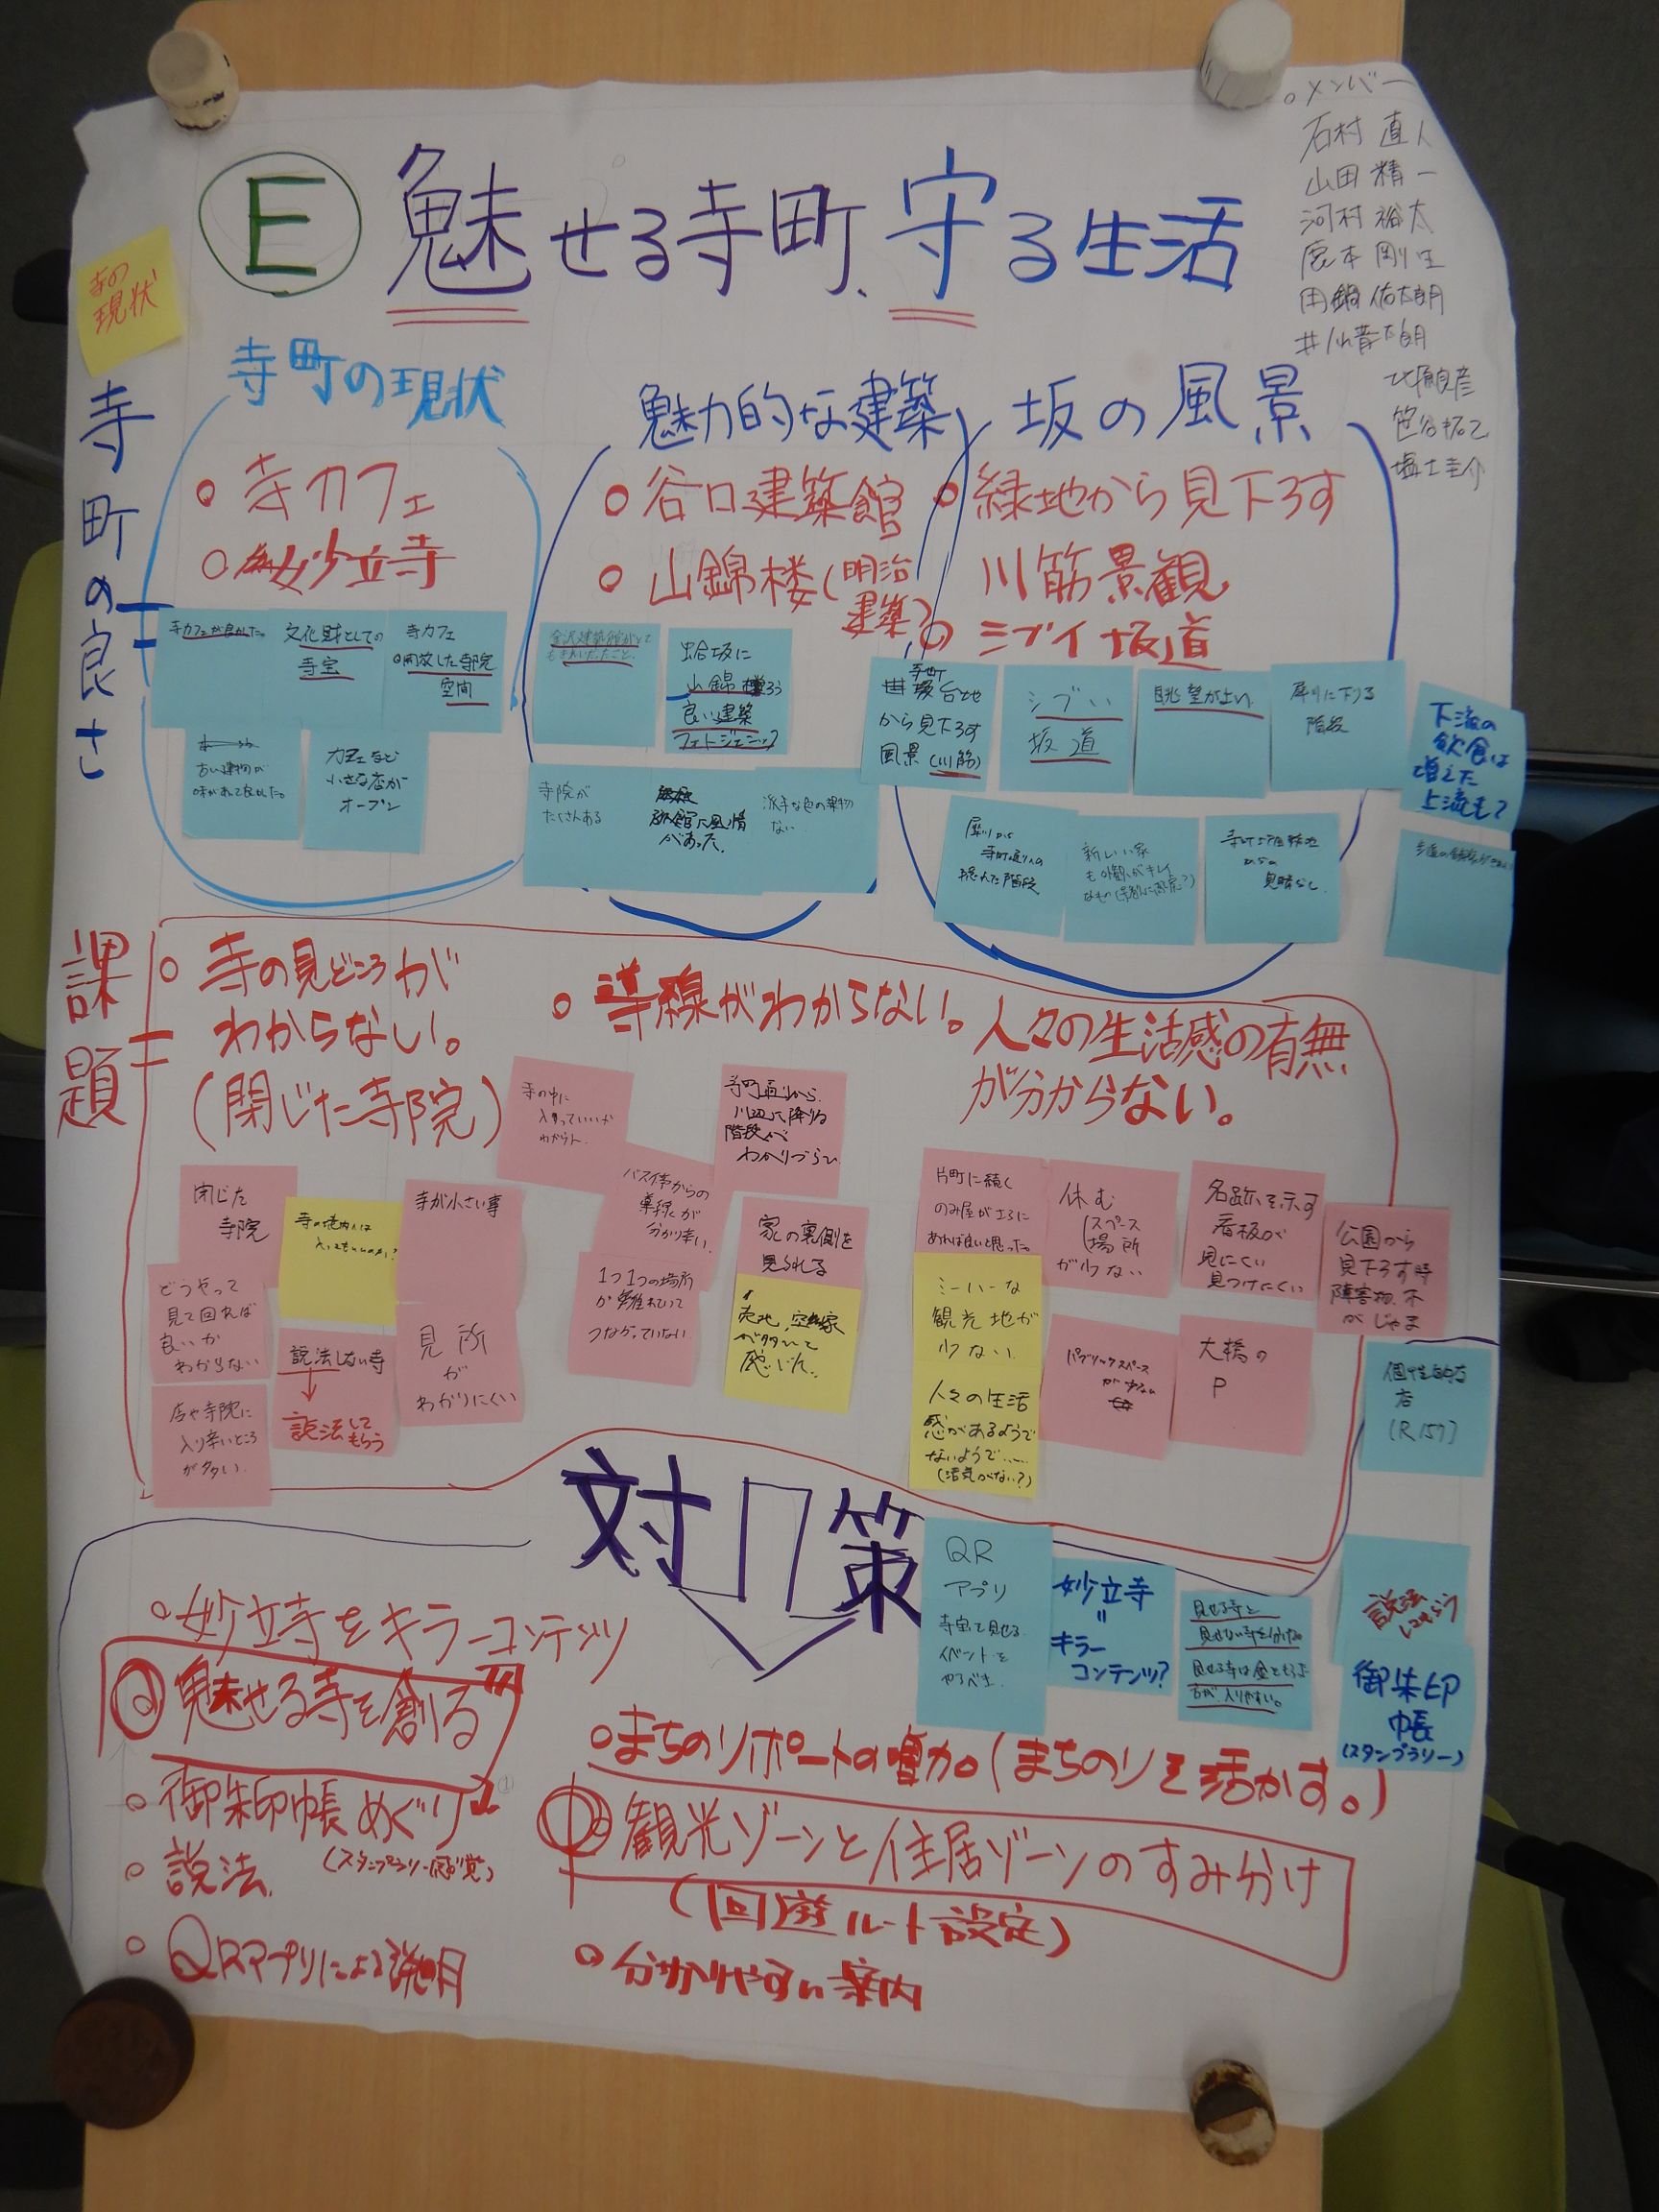 E 魅せる寺町、守る生活
メンバー
石村 直人
山田 精一
河村 裕太
鹿本 剛生
田鍋 佑太朗
寺の
現状
寺町の良さ
寺町の現状
寺カフェ
妙立寺
寺カフェが良かった。
文化財としての
寺宝
寺カフェ
開放した寺院
空間
古い建物が
カフェなど
小さな店が
オープン
魅力的な建築
谷口建築館
山錦楼(明治
建築)
蛤坂に
山錦楼
良い建築
フォトジェニック
寺院が
たくさんある
旅館に風情
があった。
派手な色の建物
ない
坂の風景
緑地から見下ろす
川筋景観
シブイ坂道
寺町
台地
から見下ろす
風景(川筋)
シブい
坂道
眺望が良い
犀川に下りる
階段
犀川から
寺町通りへの
隠れた階段
新しい家
も外観がキレイ
見晴らし
下流の
飲食は
増えた
上流も?
課題
寺の見どころが
わからない。
(閉じた寺院)
導線がわからない。
人々の生活感の有無
が分からない。
寺の中に
入っていいか
わからん
寺町通りから
川辺に降りる
階段が
わかりづらい
閉じた
寺院
寺の境内には
入ってもいいのか?
寺が小さい事
バス停からの
導線が
分かり辛い。
家の裏側を
見られる
どうやって
見て回れば
良いか
わからない
説法しない寺
説法して
もらう
見所
が
わかりにくい
1つ1つの場所
が離れていて
つながっていない
売地、空家
が多いと
感じた。
店や寺院に
入り辛いところ
が多い。
片町に続く
のみ屋がさらに
あれば良いと思った。
休む
スペース
場所
が少ない
名跡を示す
看板が
見にくい
見つけにくい
公園から
見下ろす時
障害物、木
がじゃま
ミーハーな
観光地が
少ない
人々の生活
感があるようで
ないようで……
(活気がない?)
パブリックスペース
が少ない
大橋の
P
個性的な
店
(R157)
対策
QR
アプリ
寺宝を見せる
イベントを
やるべき
妙立寺
=
キラー
コンテンツ?
見せる寺と
見せない寺を分ける
見せる寺は金とるよう
方が入りやすい。
説法
してもらう
御朱印
帳
(スタンプラリー)
妙立寺をキラーコンテンツ
魅せる寺を創る
御朱印帳めぐり
(スタンプラリー感覚)
説法
QRアプリによる説明
まちのりポートの増加。(まちのりを活かす。)
観光ゾーンと住居ゾーンのすみ分け
(回遊ルート設定)
分かりやすい案内